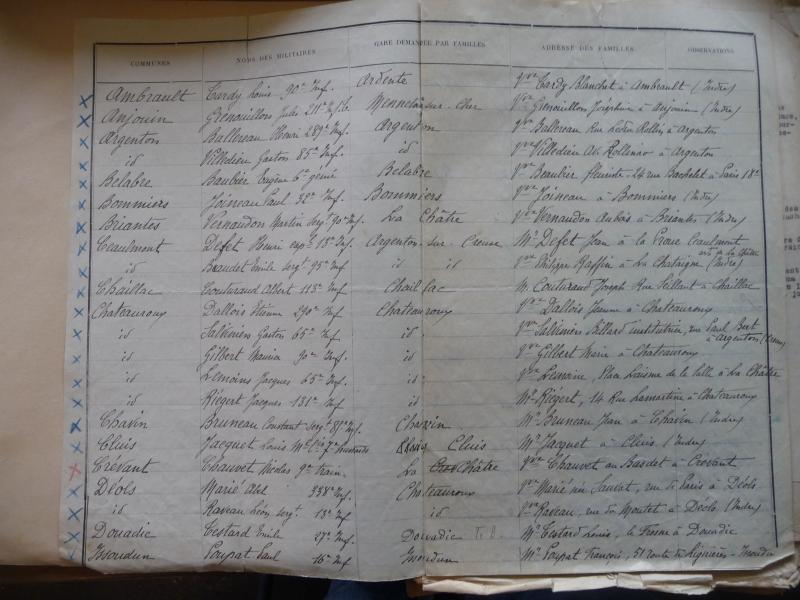 COMMUNES NOMS DES MILITAIRES GARE DEMANDÉE PAR FAMILLES ADRESSE DES FAMILLES OBSERVATIONS
Ambrault Tardy Louis 90e Inf. Ardente Vve Tardy Blanchet à Ambrault (Indre)
Anjouin Grenouillon Jules 211e Inf. Mennetou-sur-Cher Vve Grenouillon Joséphine à Anjouin (Indre)
Argenton Ballereau Henri 289e Inf. Argenton Vve Ballereau Rue Ledru Rollin, à Argenton
id Villedieu Gaston 85e Inf. id Vve Villedieu Av. Rollinat à Argenton
Belabre Baubier Eugène 6e génie Belabre Vve Beaubier, fleuriste 24 rue Bachelet à Paris 18e
Bommiers Joineau Paul 32e Inf. Bommiers Vve Joineau à Bommiers (Indre)
Briantes Vernaudon Martin Sergt 90e Inf. La Châtre Vve Vernaudon Aubois à Briantes (Indre)
Ceaulmont Defet Henri cap. 13e Inf. Argenton-sur-Creuse Mr Defet Jean à la Prone Ceaulmont
id Beaudet Emile Sergt 95e Inf id id Vve Philippe Raffin à La Chataigne (Indre)
Chaillac Couturaud Albert 113e Inf Chaillac M. Couturaud Joseph Rue à Chaillac
Chateauroux Dallois Etienne 290e Inf Chateauroux Vve Dallois Jeanne à Chateauroux
id Gaston 65e Inf id Vve Billard institutrice, rue Paul Bert
à Argenton (Creuse)
id Gilbert Maurice 90e Inf. id. Vve Gilbert Marie à Chateauroux
id Lemoine Jacques 65e Inf. id. Vve Lemoine, Place de la Salle à La Châtre
id Riegert Jacques 131e Inf id. Mr Riegert, 14 Rue Lamartine à Chateauroux
Chavin Bruneau Constant Sergt Inf. Chavin Mr Bruneau Jean à Chavin (Indre)
Cluis Jacquet Louis 7e Hussards Cluis Mr Jacquet à Cluis (Indre)
Crevant Chauvet Nicolas 9e train. La Châtre Vve Chauvet au Bardet à Crevant
Déols Marié Abel 338e Inf. Chateauroux Vve Marié née Sautat, rue de Paris à Déols
id Raveau Léon Sergt 13e Inf id Vve Raveau, rue du Montet à Déols (Indre)
Douadic Testard Emile 27e Inf. Douadic T.B. Mr Testard Louis, le Fresne à Douadic
Issoudun Poupat Paul 16e Inf Issoudun Mr Poupat François, 51 route de Lignières - Issoudun